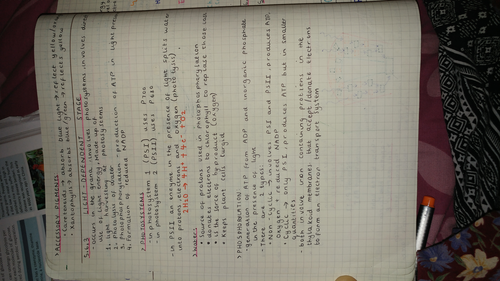 • ACCESSORY PIGMENTS
- Carotenoids → absorb blue light → reflect yellow
- Xanthophylls absorbs blue/green → reflects yellow
5.6.3 LIGHT DEPENDENT STAGE
- occurs in the grana, involves photosystems
use of light energy. Made up of
1. light harvesting at photosystems
2. photolysis of water
3. Photophosphorylation - production of ATP in light
4. formation of reduced NADP
1. PHOTOSYSTEMS
- in photosystem 1 (PSI) uses P700
- in photosystem 2 (PSII) uses P680
- in PSII an enzyme in the presence of light splits water
into protons, electrons and oxygen (photolysis)
2H₂O → 4H⁺ + 4e⁻ + O₂
2. WATER:
• Source of protons used in photophosphorylation
• donates electrons to chlorophyll to replace those lost
• is the source of by product (oxygen)
• keeps plant cells turgid
3. PHOTOPHOSPHORYLATION
- generation of ATP from ADP and inorganic phosphate
in the presence of light
- There are 2 types
• non-cyclic → involves PSI and PSII. produces ATP,
oxygen + reduced NADP
• Cyclic → only PSI. produces ATP but in smaller
quantities
- both involve iron containing proteins in the
thylakoid membranes that accept/donate electrons
to form an electron transport system